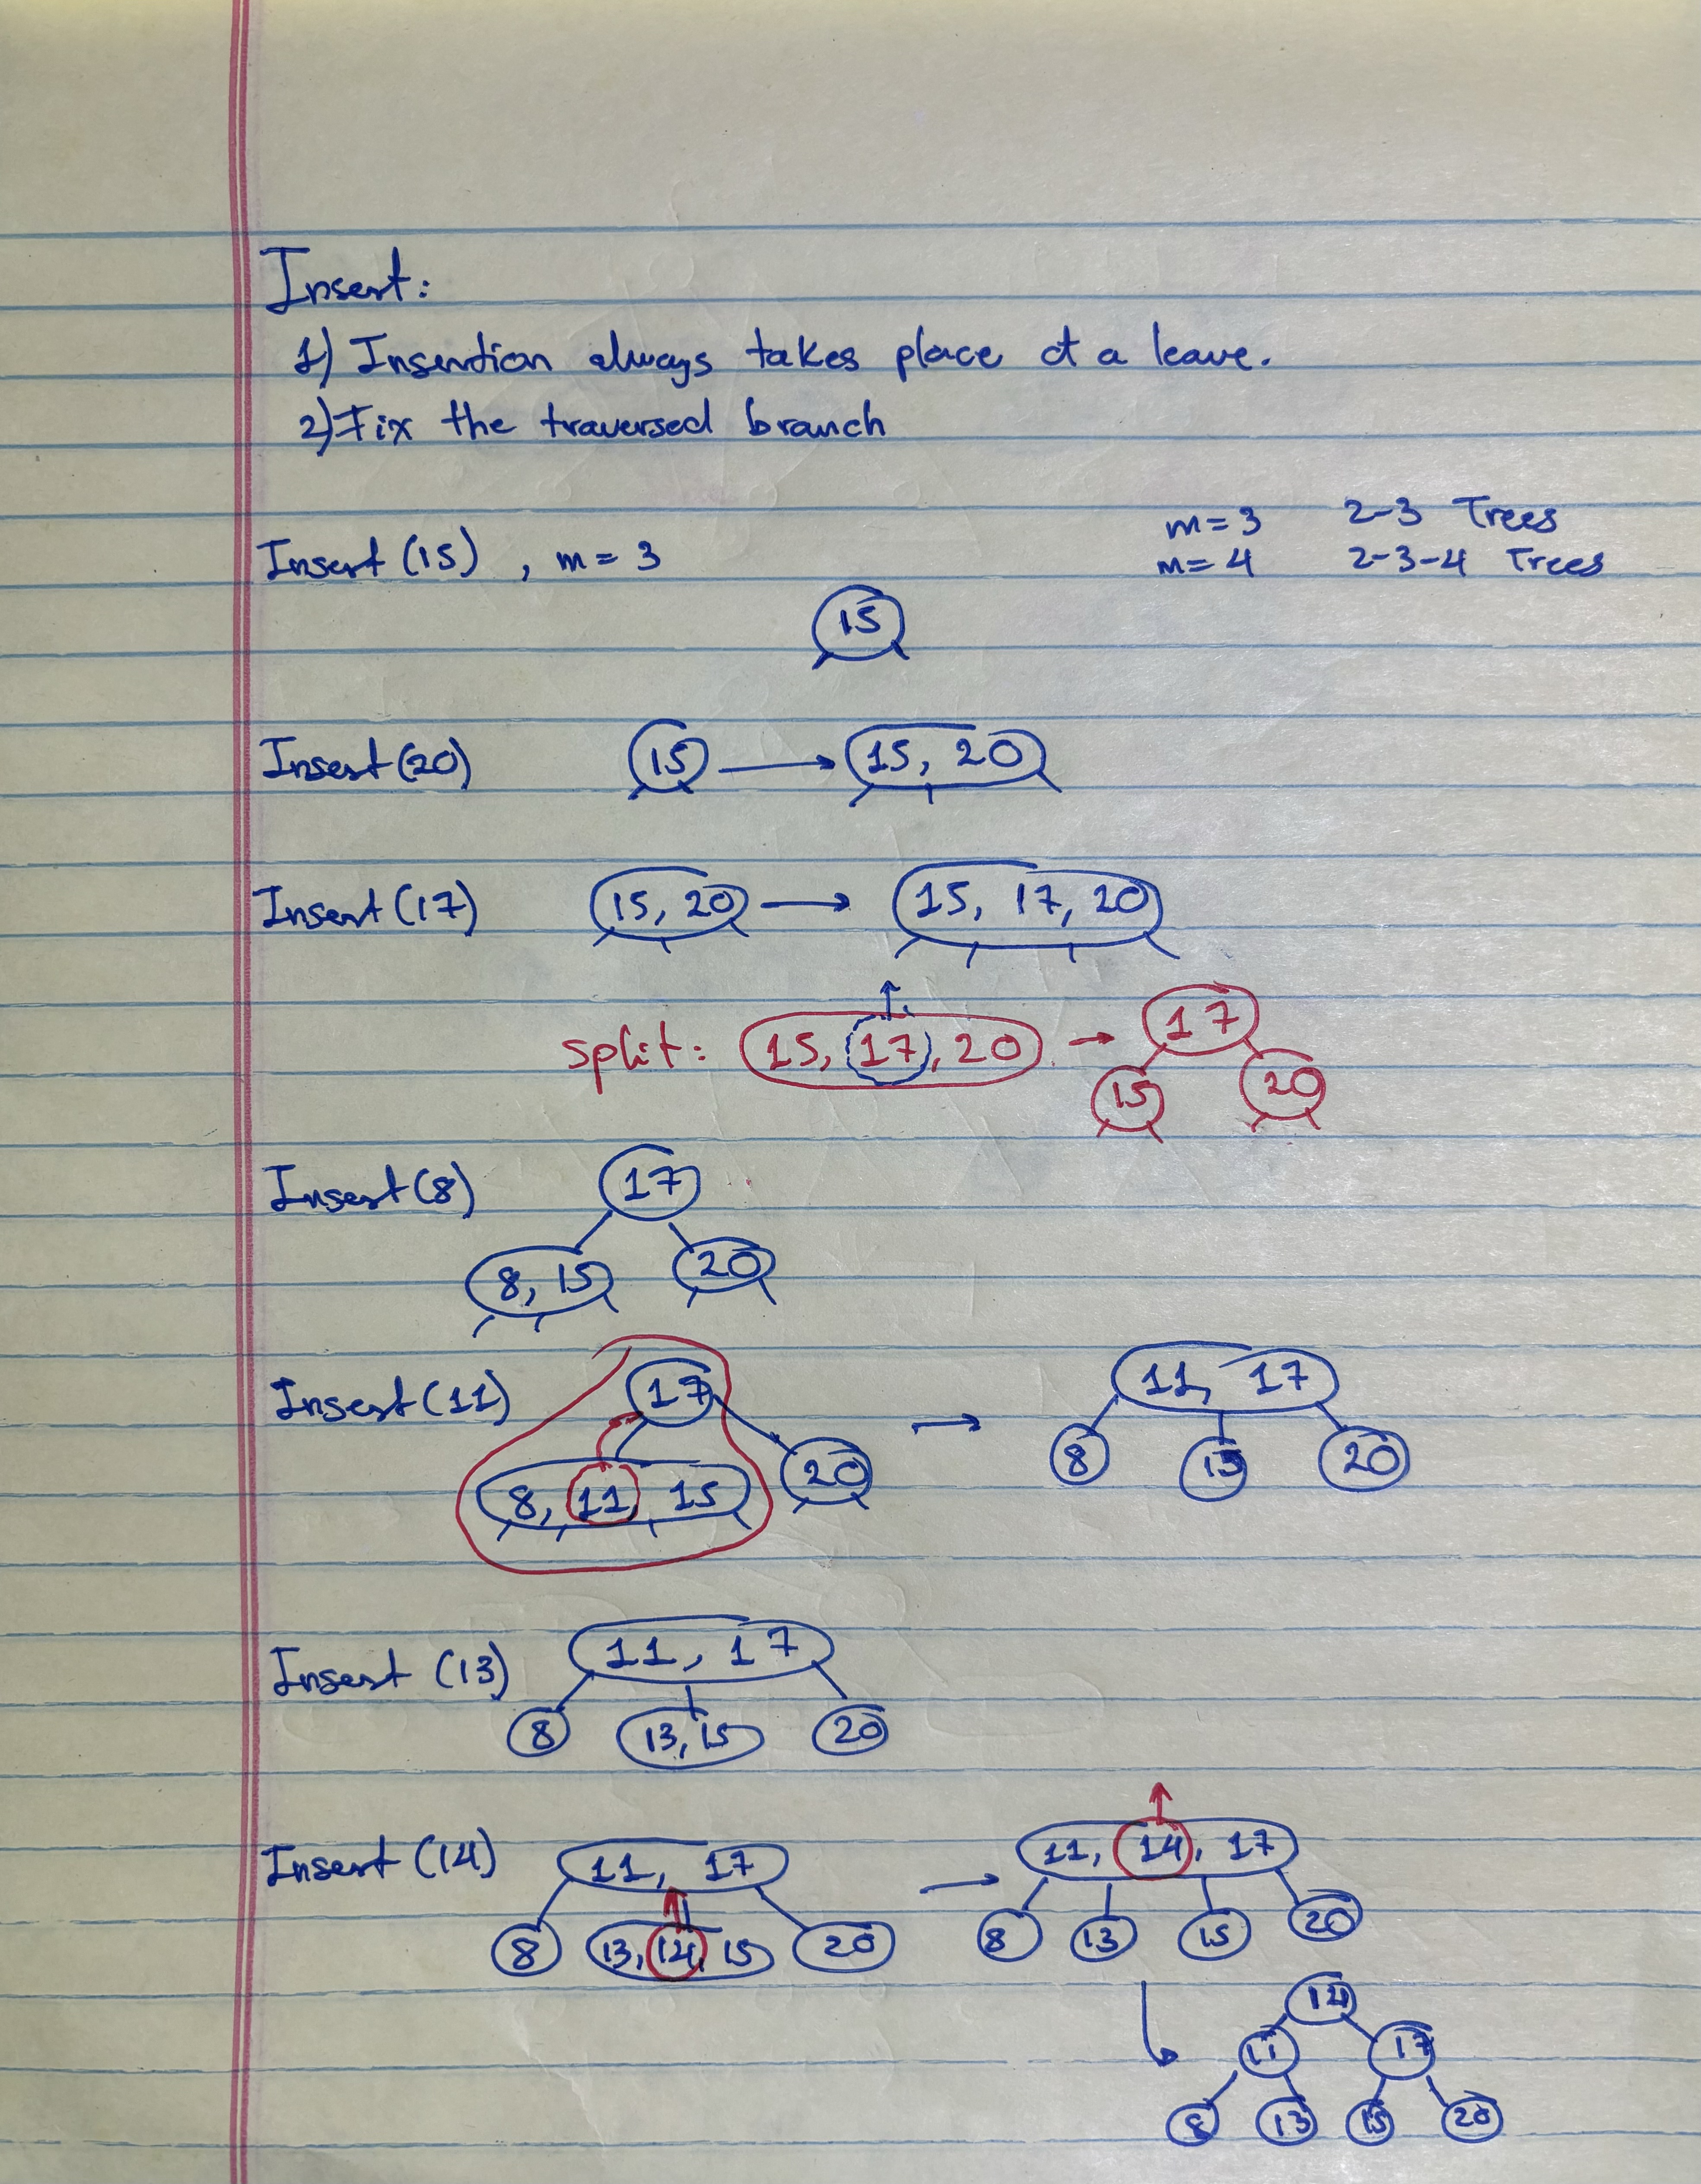 Insert:
1) Insertion always takes place at a leave.
2) Fix the traversed branch
m = 3 2-3 Trees
Insert (15) , m = 3
m = 4 2-3-4 Trees
15
Insert (20) 15 → 15, 20
Insert (17) 15, 20 → 15, 17, 20
split: 15, 17, 20 → 17
15 20
Insert (8) 17
8, 15 20
Insert (11) 17 → 11, 17
8, 11, 15 20 8 20
Insert (13) 11, 17
8 13, 15 20
Insert (14) 11, 17 → 11, 14, 17
8 13, 14, 15 20 8 13 15 20
14
11 17
8 13 15 20